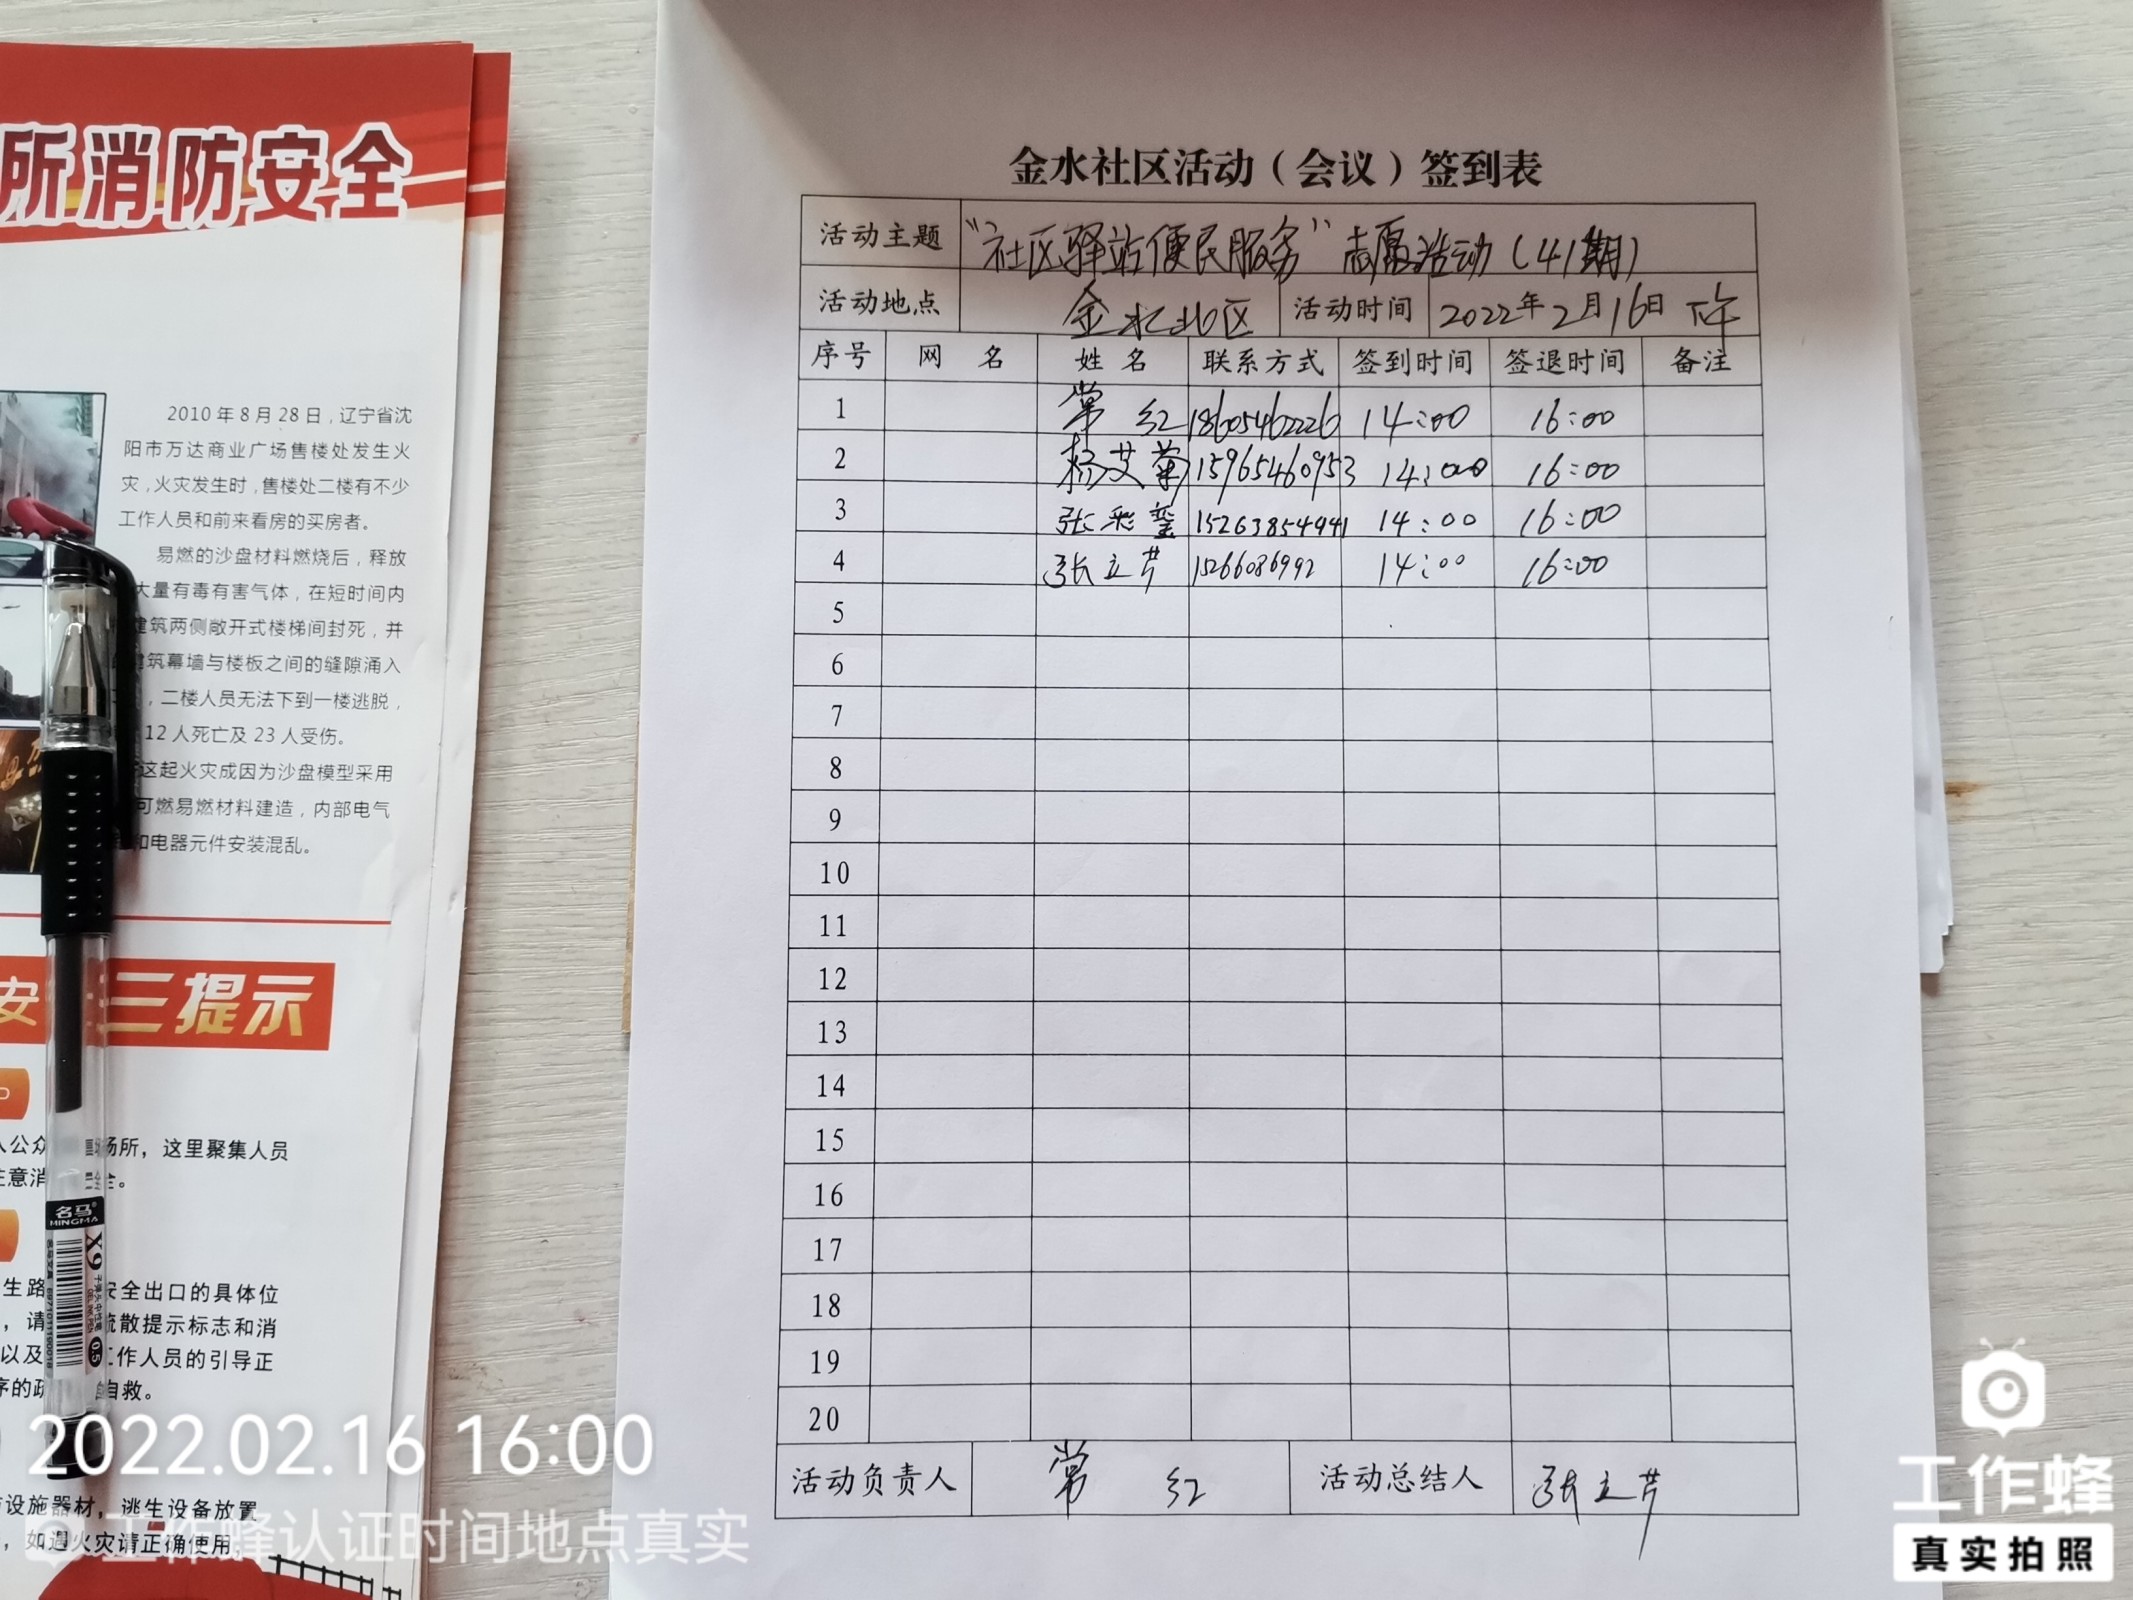 所消防安全
2010年8月28日，辽宁省沈
阳市万达商业广场售楼处发生火
灾，火灾发生时，售楼处二楼有不少
工作人员和前来看房的买房者。
易燃的沙盘材料燃烧后，释放
大量有毒有害气体，在短时间内
建筑两侧敞开式楼梯间封死，并
建筑幕墙与楼板之间的缝隙涌入
，二楼人员无法下到一楼逃脱，
12人死亡及23人受伤。
这起火灾成因为沙盘模型采用
可燃易燃材料建造，内部电气
和电器元件安装混乱。
安 三提示
入公众 场所，这里聚集人员
注意消 全。
生路 安全出口的具体位
，请 疏散提示标志和消
以及 工作人员的引导正
序的疏 自救。
设施器材，逃生设备放置
，如遇火灾请正确使用，
名马
MINGMA
X9
0.5
金水社区活动（会议）签到表
活动主题 “社区驿站便民服务”志愿活动（41期）
活动地点 金水北区 活动时间 2022年2月16日 下午
序号 网 名 姓 名 联系方式 签到时间 签退时间 备注
1 常 红 18605462226 14:00 16:00
2 杨艾菊 15965460953 14:00 16:00
3 张彩玺 15263854941 14:00 16:00
4 张立芹 15266086992 14:00 16:00
5
6
7
8
9
10
11
12
13
14
15
16
17
18
19
20
活动负责人 常 红 活动总结人 张立芹
2022.02.16 16:00
工作蜂认证时间地点真实
工作蜂
真实拍照